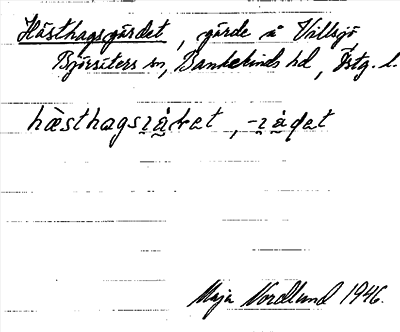 Hästhagsgärdet, gärde å Villsjö
Björsäters sn, Bankekinds hd, Östg. l.
hästhagsɿåʀet, -ɿåɖet
Maja Nordlund 1946.